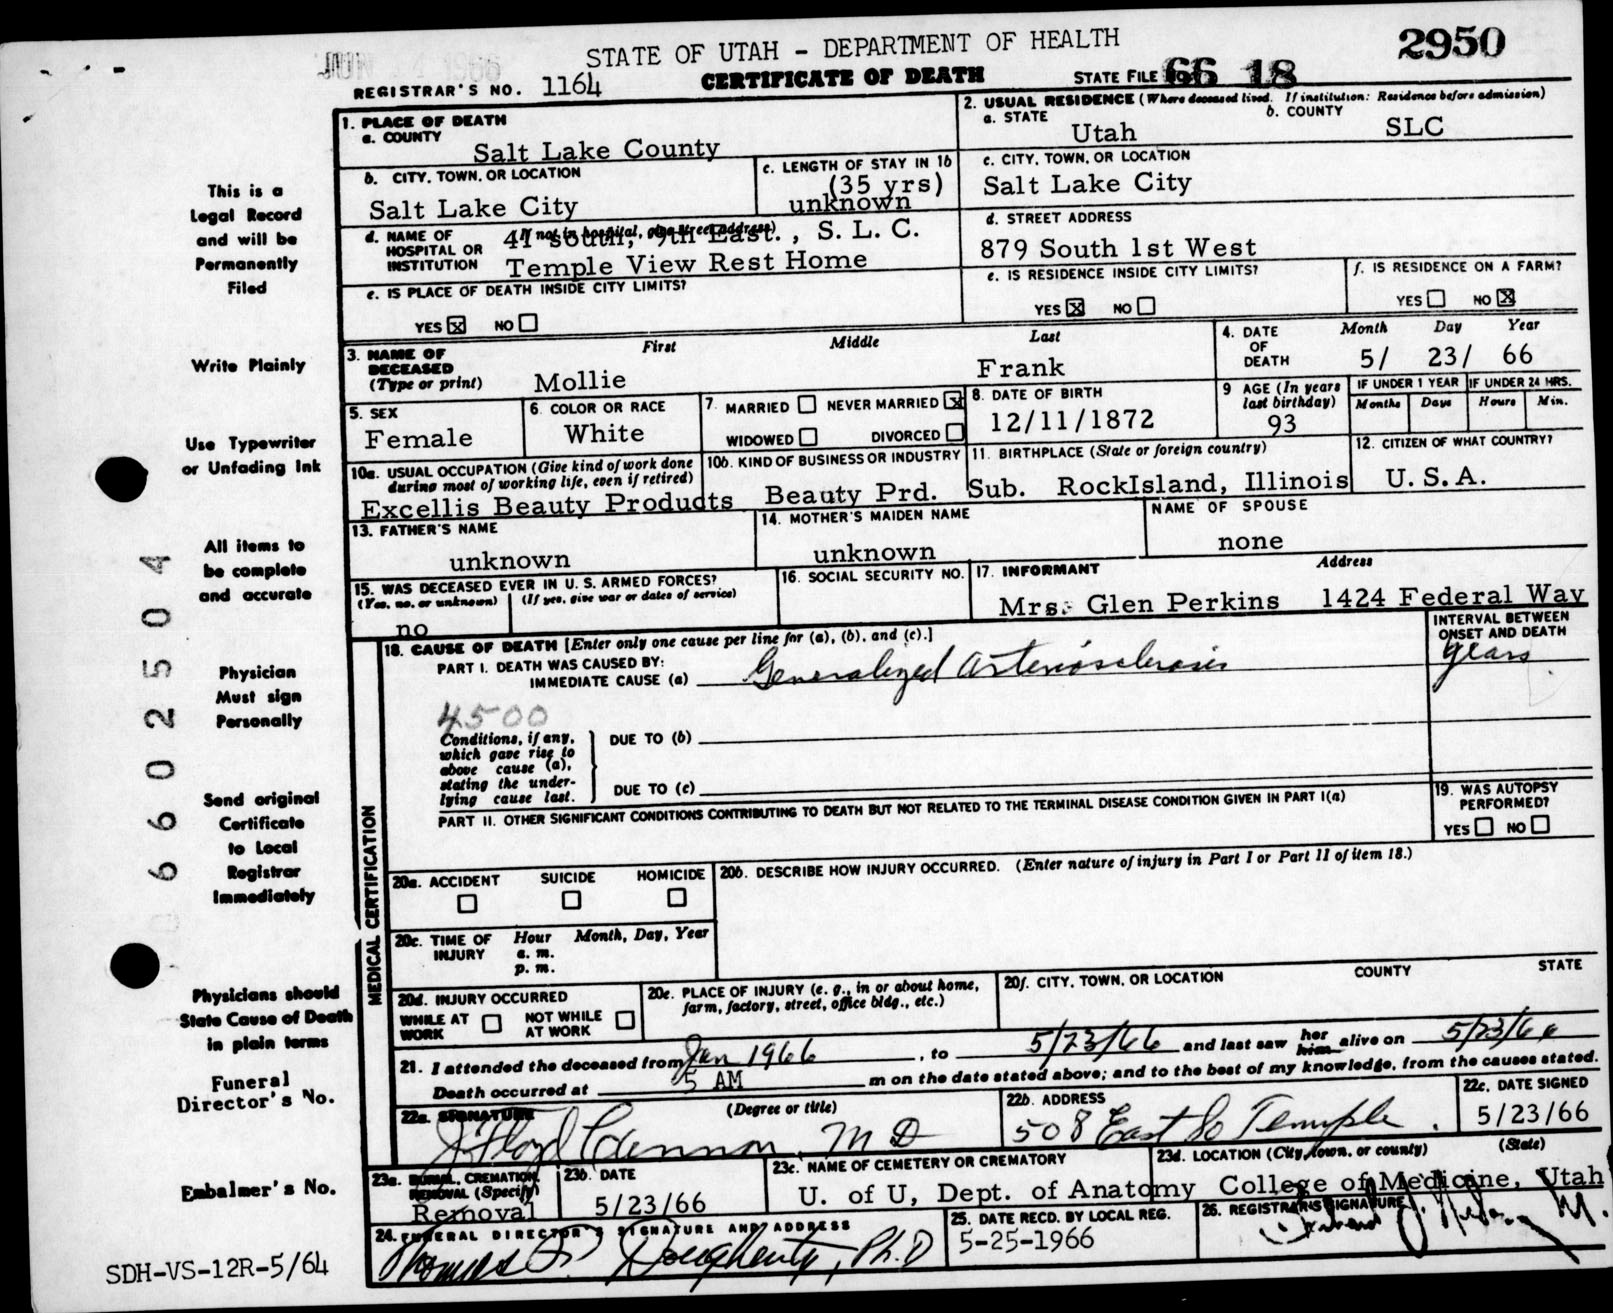 STATE OF UTAH - DEPARTMENT OF HEALTH
2950
JUN 1966
REGISTRAR'S NO. 1164
CERTIFICATE OF DEATH
STATE FILE 66 18
1. PLACE OF DEATH
a. COUNTY
Salt Lake County
2. USUAL RESIDENCE (Where deceased lived. If institution: Residence before admission)
a. STATE
Utah
b. COUNTY
SLC
b. CITY, TOWN, OR LOCATION
Salt Lake City
c. LENGTH OF STAY IN 1b
(35 yrs)
unknown
c. CITY, TOWN, OR LOCATION
Salt Lake City
d. NAME OF HOSPITAL OR INSTITUTION
(If not in hospital, give street address)
41 South, 9th East., S. L. C.
Temple View Rest Home
d. STREET ADDRESS
879 South 1st West
e. IS PLACE OF DEATH INSIDE CITY LIMITS?
YES x NO
e. IS RESIDENCE INSIDE CITY LIMITS?
YES x NO
f. IS RESIDENCE ON A FARM?
YES NO x
3. NAME OF DECEASED
(Type or print)
First Middle Last
Mollie Frank
4. DATE OF DEATH
Month Day Year
5/ 23/ 66
5. SEX
Female
6. COLOR OR RACE
White
7. MARRIED NEVER MARRIED x
WIDOWED DIVORCED
8. DATE OF BIRTH
12/11/1872
9 AGE (In years last birthday)
93
IF UNDER 1 YEAR
Months Days
IF UNDER 24 HRS.
Hours Min.
10a. USUAL OCCUPATION (Give kind of work done during most of working life, even if retired)
Excellis Beauty Products
10b. KIND OF BUSINESS OR INDUSTRY
Beauty Prd. Sub.
11. BIRTHPLACE (State or foreign country)
RockIsland, Illinois
12. CITIZEN OF WHAT COUNTRY?
U.S.A.
13. FATHER'S NAME
unknown
14. MOTHER'S MAIDEN NAME
unknown
NAME OF SPOUSE
none
15. WAS DECEASED EVER IN U. S. ARMED FORCES?
(Yes, no, or unknown) (If yes, give war or dates of service)
no
16. SOCIAL SECURITY NO.
17. INFORMANT Address
Mrs. Glen Perkins 1424 Federal Way
MEDICAL CERTIFICATION
18. CAUSE OF DEATH [Enter only one cause per line for (a), (b), and (c).]
PART I. DEATH WAS CAUSED BY:
IMMEDIATE CAUSE (a) Generalized arteriosclerosis
INTERVAL BETWEEN ONSET AND DEATH
years
4500
Conditions, if any, which gave rise to above cause (a), stating the underlying cause last.
DUE TO (b)
DUE TO (c)
PART II. OTHER SIGNIFICANT CONDITIONS CONTRIBUTING TO DEATH BUT NOT RELATED TO THE TERMINAL DISEASE CONDITION GIVEN IN PART I(a)
19. WAS AUTOPSY PERFORMED?
YES NO
20a. ACCIDENT SUICIDE HOMICIDE
20b. DESCRIBE HOW INJURY OCCURRED. (Enter nature of injury in Part I or Part II of item 18.)
20c. TIME OF INJURY
Hour Month, Day, Year
a. m.
p. m.
20d. INJURY OCCURRED
WHILE AT WORK NOT WHILE AT WORK
20e. PLACE OF INJURY (e. g., in or about home, farm, factory, street, office bldg., etc.)
20f. CITY, TOWN, OR LOCATION COUNTY STATE
21. I attended the deceased from Jan 1966, to 5/23/66 and last saw her him alive on 5/23/66
Death occurred at 5 AM m on the date stated above; and to the best of my knowledge, from the causes stated.
22a. SIGNATURE (Degree or title)
J. Floyd Cannon, M D
22b. ADDRESS
508 East So Temple.
22c. DATE SIGNED
5/23/66
23a. BURIAL, CREMATION, REMOVAL (Specify)
Removal
23b. DATE
5/23/66
23c. NAME OF CEMETERY OR CREMATORY
U. of U, Dept. of Anatomy
23d. LOCATION (City, town, or county) (State)
College of Medicine, Utah
24. FUNERAL DIRECTOR'S SIGNATURE AND ADDRESS
Thomas F. Dougherty, Ph.D
25. DATE RECD. BY LOCAL REG.
5-25-1966
26. REGISTRAR'S SIGNATURE
This is a
Legal Record
and will be
Permanently
Filed
Write Plainly
Use Typewriter
or Unfading Ink
All items to
be complete
and accurate
Physician
Must sign
Personally
Send original
Certificate
to Local
Registrar
Immediately
Physicians should
State Cause of Death
in plain terms
Funeral
Director's No.
Embalmer's No.
SDH-VS-12R-5/64
06602504